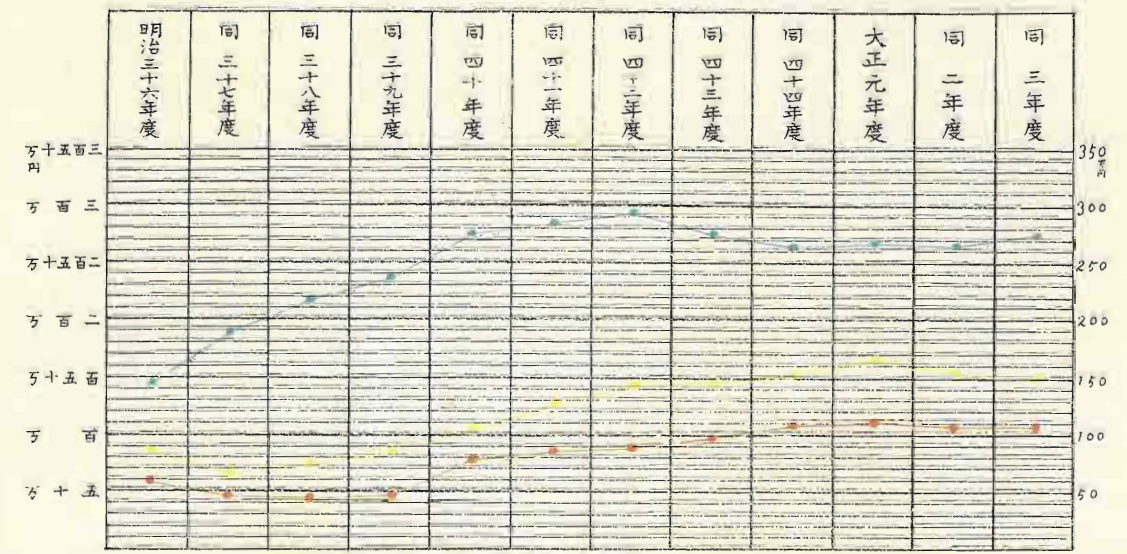 明治三十六年度
同 三十七年度
同 三十八年度
同 三十九年度
同 四十年度
同 四十一年度
同 四十二年度
同 四十三年度
同 四十四年度
大正元年度
同 二年度
同 三年度
三百五十万円
三百万
二百五十万
二百万
百五十万
百万
五十万
350万円
300
250
200
150
100
50